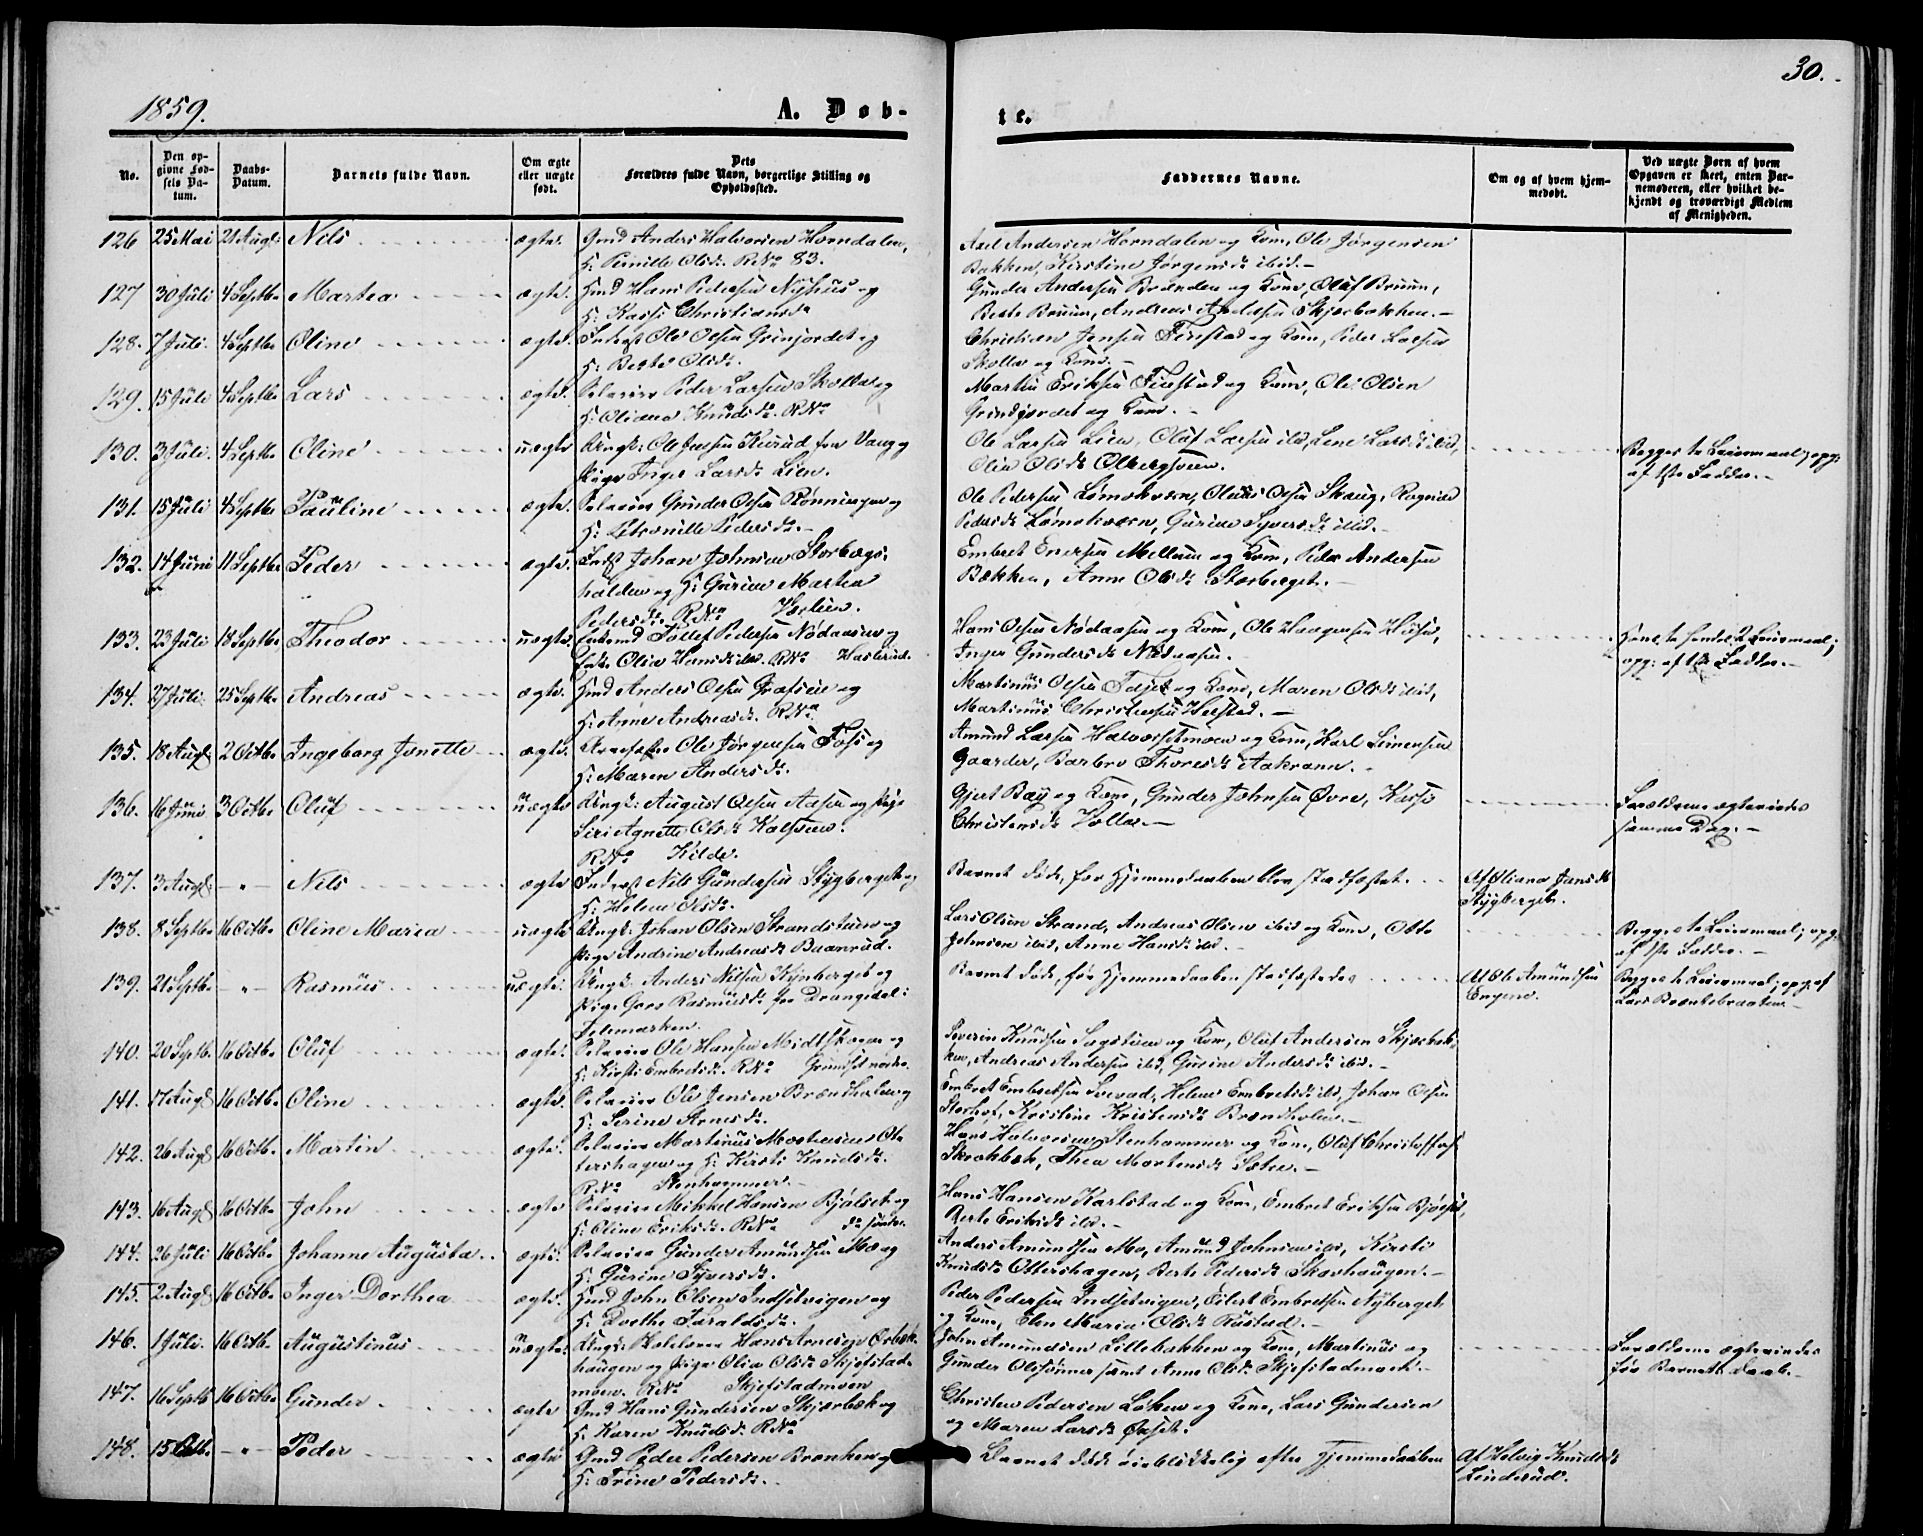 1859.
A. Døb-
te.
30.
No.
Den op-
givne Fød-
sels Da-
tum.
Daabs-
Datum.
Barnets fulde Navn.
Om ægte
eller uægte
født.
Dets
Forældres fulde Navn, borgerlige Stilling og
Opholdssted.
Faddernes Navne.
Om og af hvem hjem-
medøbt.
Ved uægte Børn af hvem
Opgaven er skeet, enten Bar-
nemoderen, eller hvilket be-
kjendt og troværdigt Medlem
af Menigheden.
126 25 Mai 21 Augs Nils ægte. Gmd Anders Halvorsen Horndalen,
H: Pernille Olsd. RNo 83.
Axel Andersen Horndalen og Kone, Ole Jørgensen
Bakken, Kirstine Jørgensd. ibid.
127 30 Juli 4 Septbr Martea ægte. Hmd Hans Pedersen Nyhuus og
H: Kassi Christiansd.
Gunder Andersen Brænden og Kone, Oluf Bruun,
Berte Bruun, Andreas Andersen Skjærbækken.
128. 7 Juli. 4 Septbr Oline ægte. Inderst Ole Olsen Grinjordet og
H: Berte Olsd.
Christian Jensen Finstad og Kone, Peder Larsen
Skollar og Kone.
129. 15 Juli 4 Septbr Lars ægte. Selveier Peder Larsen Skollar og
H: Oliana Knudsd. RNo
Martin Eriksen Finstad og Kone, Ole Olsen
Grindjordet og Kone.
130. 3 Juli. 4 Septbr Oline uægte Ungk: Ole Jensen Kurud fra Vang og
Pige Inger Larsd. Lien.
Ole Larsen Lien, Oluf Larsen ibid, Lene Larsd. ibid,
Olia Olsd. Olbergsveen.
Begges 1te Leiermaal, opg:
af 1ste Fadder.
131. 15 Juli 4 Septbr Pauline ægte. Selveier Gunder Olsen Rønningen og
H: Petronille Pedersd.
Ole Pedersen Lømokværn, Olaus Olsen Skaug, Ragnild
Pedersd. Lømokværn, Gurine Syversd. ibid.
132. 14 Juni 11 Septbr Peder ægte. Indst Johan Johnsen Storbergs-
halden og H: Gurine Martea
Pedersd. RNo Hærlien.
Embret Enersen Mellum og Kone, Peder Andersen
Bækken, Anne Olsd. Storberget.
133. 23 Juli 18 Septbr Theodor uægte. Enkemd Tollef Pedersen Nødaasen og
Enke Olia Hansd. ibid. RNo Haslerud.
Hans Olsen Nødaasen og Kone, Ole Haagensen
Inger Gundersd. Nødaasen.
Hans 1te hendes 2 Leiermaal;
opg: af 1ste Fadder.
134. 27 Juli. 25 Septbr Andreas ægte. Hmd Anders Olsen Græsli og
H: Anne Andreasd. RNo
Martinus Olsen og Kone, Maren Olsd. ibid,
Martinus Christiansen
135. 18 Augs 2 Octbr Ingeborg Jonette ægte. Ole Jørgensen Foss og
H: Maren Andersd.
Amund Larsen Halvorsmoen og Kone, Karl Simensen
Gaarder, Barbro Thoresd. Aakrann.
136. 16 Juni 3 Octbr Oluf uægte Ungk: August Olsen Aasen og Pige
Siri Agnette Olsd. Kolsveen.
RNo Kilde.
Gjert Bay og Kone, Gunder Johnsen Øvre, Kassi
Christensd. Vollar.
Forældrene ægteviedes
samme Dag.
137. 3 Augs. - " - Nils ægte Inderst Nils Gundersen Stygberget og
H: Helene Olsd.
Barnet døde, før Hjemmedaaben blev stadfæstet.
Af Oliana Jensd.
Stygberget.
138. 8 Septbr 16 Octbr Oline Maria uægte Ungk: Johan Olsen Strandstuen og
Pige Andrine Andreasd. Baanrud.
Lars Olsen Strand, Andreas Olsen ibid og Kone, Otto
Johnsen ibid, Anne Hansd. ibid.
Begges 1te Leiermaal, opg:
af 1ste Fadder.
139. 21 Septbr - " - Rasmus uægte. Ungk: Anders Nilsen Kjørberget og
Pige Goro Rasmusd. fra Drangedal i
Telemarken.
Barnet døde, før Hjemmedaaben stadfæstedes
Af Ole Amundsen
Engene.
Begges 1te Leiermaal, opg: af
Lars Brænkebraaten.
140. 20 Septbr 16 Octbr Oluf ægte. Selveier Ole Hansen Midtskogen og
H: Kirsti Embretsd. RNo Grundset nordre.
Severin Knudsen Sagstuen og Kone, Oluf Andersen Skjærbæk-
ken, Andreas Andersen ibid, Gurine Andersd. ibid.
141. 17 Augs 16 Octbr Oline ægte. Selveier Ole Jensen Brændholen og
H: Serine Arnesd.
Embret Embretsen Sverad, Helene Embretsd. ibid, Johan Olsen
Storhof, Kristine Kristensd. Brændholen.
142. 26 Augs 16 Octbr Martin ægte. Selveier Martinus Mortensen Ot-
tershagen og H: Kirsti Knudsd.
RNo Stenhammer.
Hans Halvorsen Stenhammer og Kone, Oluf Christoffers.
Skrokbæk, Thea Mortensd. Sætre.
143. 16 Augs 16 Octbr John ægte Selveier Mikkel Hansen Bjølset og
H: Oline Eriksd. RNo do søndre.
Hans Hansen Karlstad og Kone, Embret Eriksen Bjølset,
Berte Eriksd. ibid.
144. 26 Juli 16 Octbr Johanne Augusta ægte. Selveier Gunder Amundsen Mo og
H: Gurine Syversd.
Anders Amundsen Mo, Amund Johnsen ibid, Kirsti
Knudsd. Ottershagen, Berte Pedersd. Skovhaugen.
145. 2 Augs 16 Octbr Inger Dorthea ægte. Hmd John Olsen Indsetvigen og
H: Dorthe Haraldsd.
Peder Pedersen Indsetvigen, Eilert Embretsen Nyberget
og Kone, Elen Maria Olsd. Rustad.
146. 1 Juli. 16 Octbr Augustinus uægte. Ungk: Hans Arnesen Orbæk-
haugen og Pige Olia Olsd. Skjefstad-
moen. RNo Skjefstadmoen
John Amundsen Lillebakken og Kone, Martinus og
Gunder Olssønner samt Anne Olsd. Skjefstadmoen.
Forældrene ægteviedes
før Barnets Daab.
147. 16 Septb 16 Octbr Gunder ægte Gmd Hans Gundersen Skjærbæk og
H: Karen Knudsd. RNo
Christen Pedersen Løken og Kone, Lars Gundersen
og Maren Larsd. Øxset.
148. 15 Octb. - " - Peder ægte Gmd Peder Pedersen Brænken og
H: Trine Pedersd.
Barnet døde øieblikkelig efter Hjemmedaaben
Af Helvig Knudsd.
Linderud.